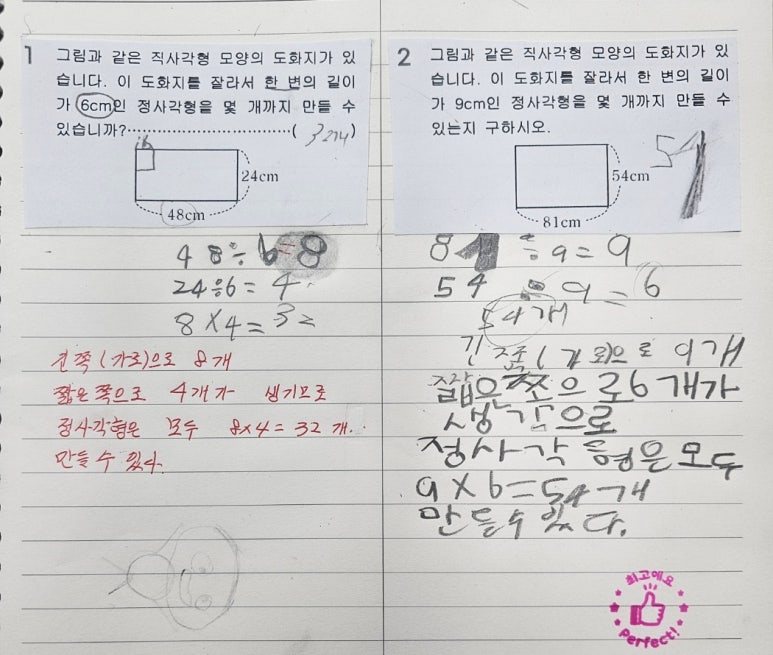 1 그림과 같은 직사각형 모양의 도화지가 있
습니다. 이 도화지를 잘라서 한 변의 길이
가 6cm인 정사각형을 몇 개까지 만들 수
있습니까?……………………………( 32개 )
24cm
48cm
48÷6=8
24÷6=4
8×4=32
긴쪽(가로)으로 8개
짧은 쪽으로 4개가 생기므로
정사각형은 모두 8×4=32개.
만들 수 있다.
2 그림과 같은 직사각형 모양의 도화지가 있
습니다. 이 도화지를 잘라서 한 변의 길이
가 9cm인 정사각형을 몇 개까지 만들 수
있는지 구하시오.
54
54cm
81cm
81÷9=9
54÷9=6
54개
긴 쪽(가로)으로 9개
짧은쪼으로6개가
생긴으로
정사각형은모두
9×6=54개
만들수있다.
최고예요
Perfect!